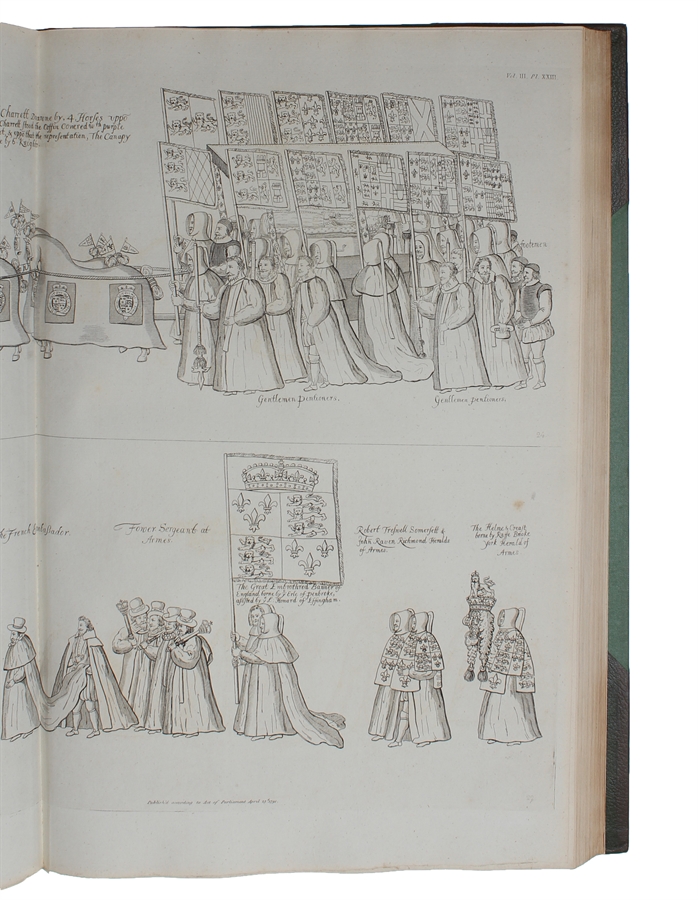 Vol III. Pl. XXIII
Charett Drawne by. 4 Horses uppō
Charett stood the Coffin Covered wth purple
& uppō that the representation, The Canopy
by 6 Knights.
footemen
Gentlemen Pentioners.
Gentlemen pentioners.
the French Embassador.
Fower Sergeants at
Armes.
The Great Embrothred Banner of
England borne by ye Erle of Penbroke,
assisted by ye L. Howard of Effingham.
Robert Treswell Somersett &
John Raven Richmond Heralds
of Armes.
The Helme & Creast
borne by
York Herald of
Armes
Publish'd according to Act of Parliament April